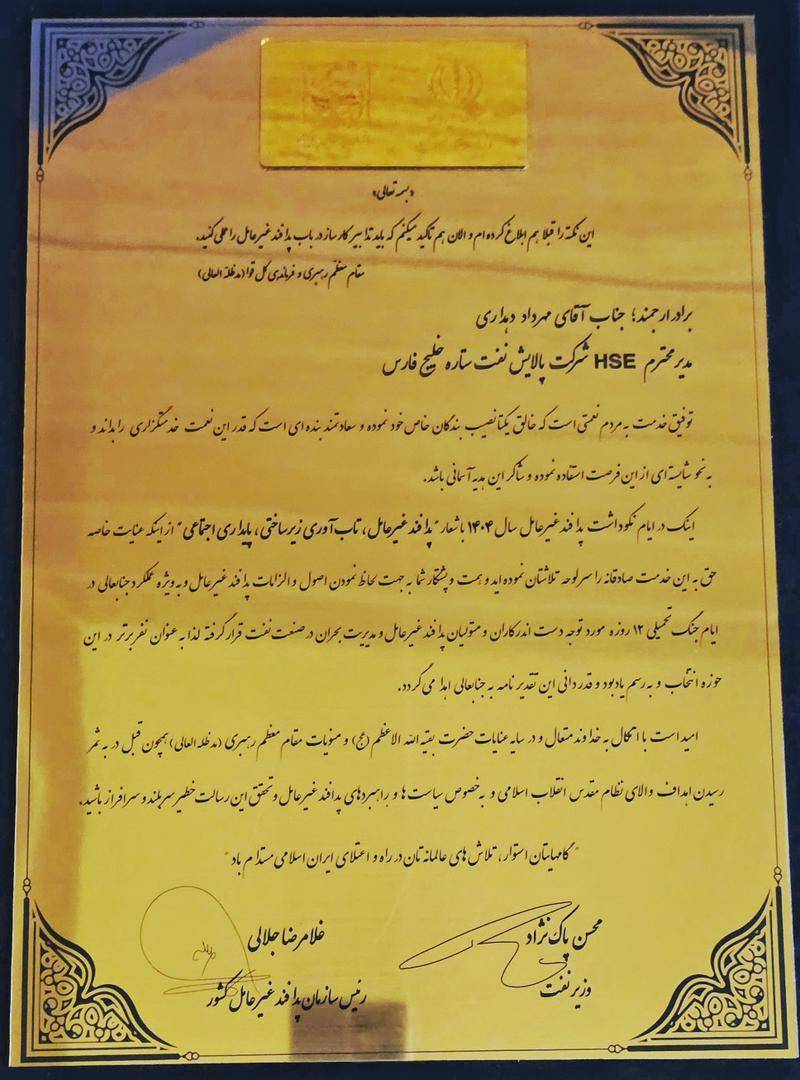 «بسمه تعالی»
این نکته را قبلا هم ابلاغ کرده ام و الان هم تاکید میکنم که باید تدابیر کارساز در باب پدافند غیرعامل را عملی کنید.
مقام معظم رهبری و فرماندهی کل قوا (مدظله العالی)
برادر ارجمند؛ جناب آقای مهرداد دهداری
مدیر محترم HSE شرکت پالایش نفت ستاره خلیج فارس
توفیق خدمت به مردم نعمتی است که خالق یکتا نصیب بندگان خاص خود نموده و سعادتمند بنده ای است که قدر این نعمت خدمتگزاری را بداند و
به نحو شایسته ای از این فرصت استفاده نموده و شاکر این هدیه آسمانی باشد.
اینک در ایام نکوداشت پدافند غیرعامل سال ۱۴۰۴ با شعار "پدافند غیرعامل، تاب آوری زیرساختی، پایداری اجتماعی" از اینکه عنایت خاصه
حق به این خدمت صادقانه را سرلوحه تلاشتان نموده اید و همت و پشتکار شما به جهت لحاظ نمودن اصول و الزامات پدافند غیرعامل و به ویژه عملکرد جنابعالی در
ایام جنگ تحمیلی ۱۲ روزه مورد توجه دست اندرکاران و متولیان پدافند غیرعامل و مدیریت بحران در صنعت نفت قرار گرفته لذا به عنوان نفر برتر در این
حوزه انتخاب و به رسم یادبود و قدردانی این تقدیر نامه به جنابعالی اهدا می گردد.
امید است با اتکال به خداوند متعال و در سایه عنایات حضرت بقیه الله الاعظم (عج) و منویات مقام معظم رهبری (مدظله العالی) همچون قبل در به ثمر
رسیدن اهداف والای نظام مقدس انقلاب اسلامی و به خصوص سیاست ها و راهبردهای پدافند غیرعامل و تحقق این رسالت خطیر سربلند و سرافراز باشید.
"گامهایتان استوار، تلاش های عالمانه تان در راه و اعتلای ایران اسلامی مستدام باد"
محسن پاک نژاد
وزیر نفت
غلامرضا جلالی
رئیس سازمان پدافند غیرعامل کشور